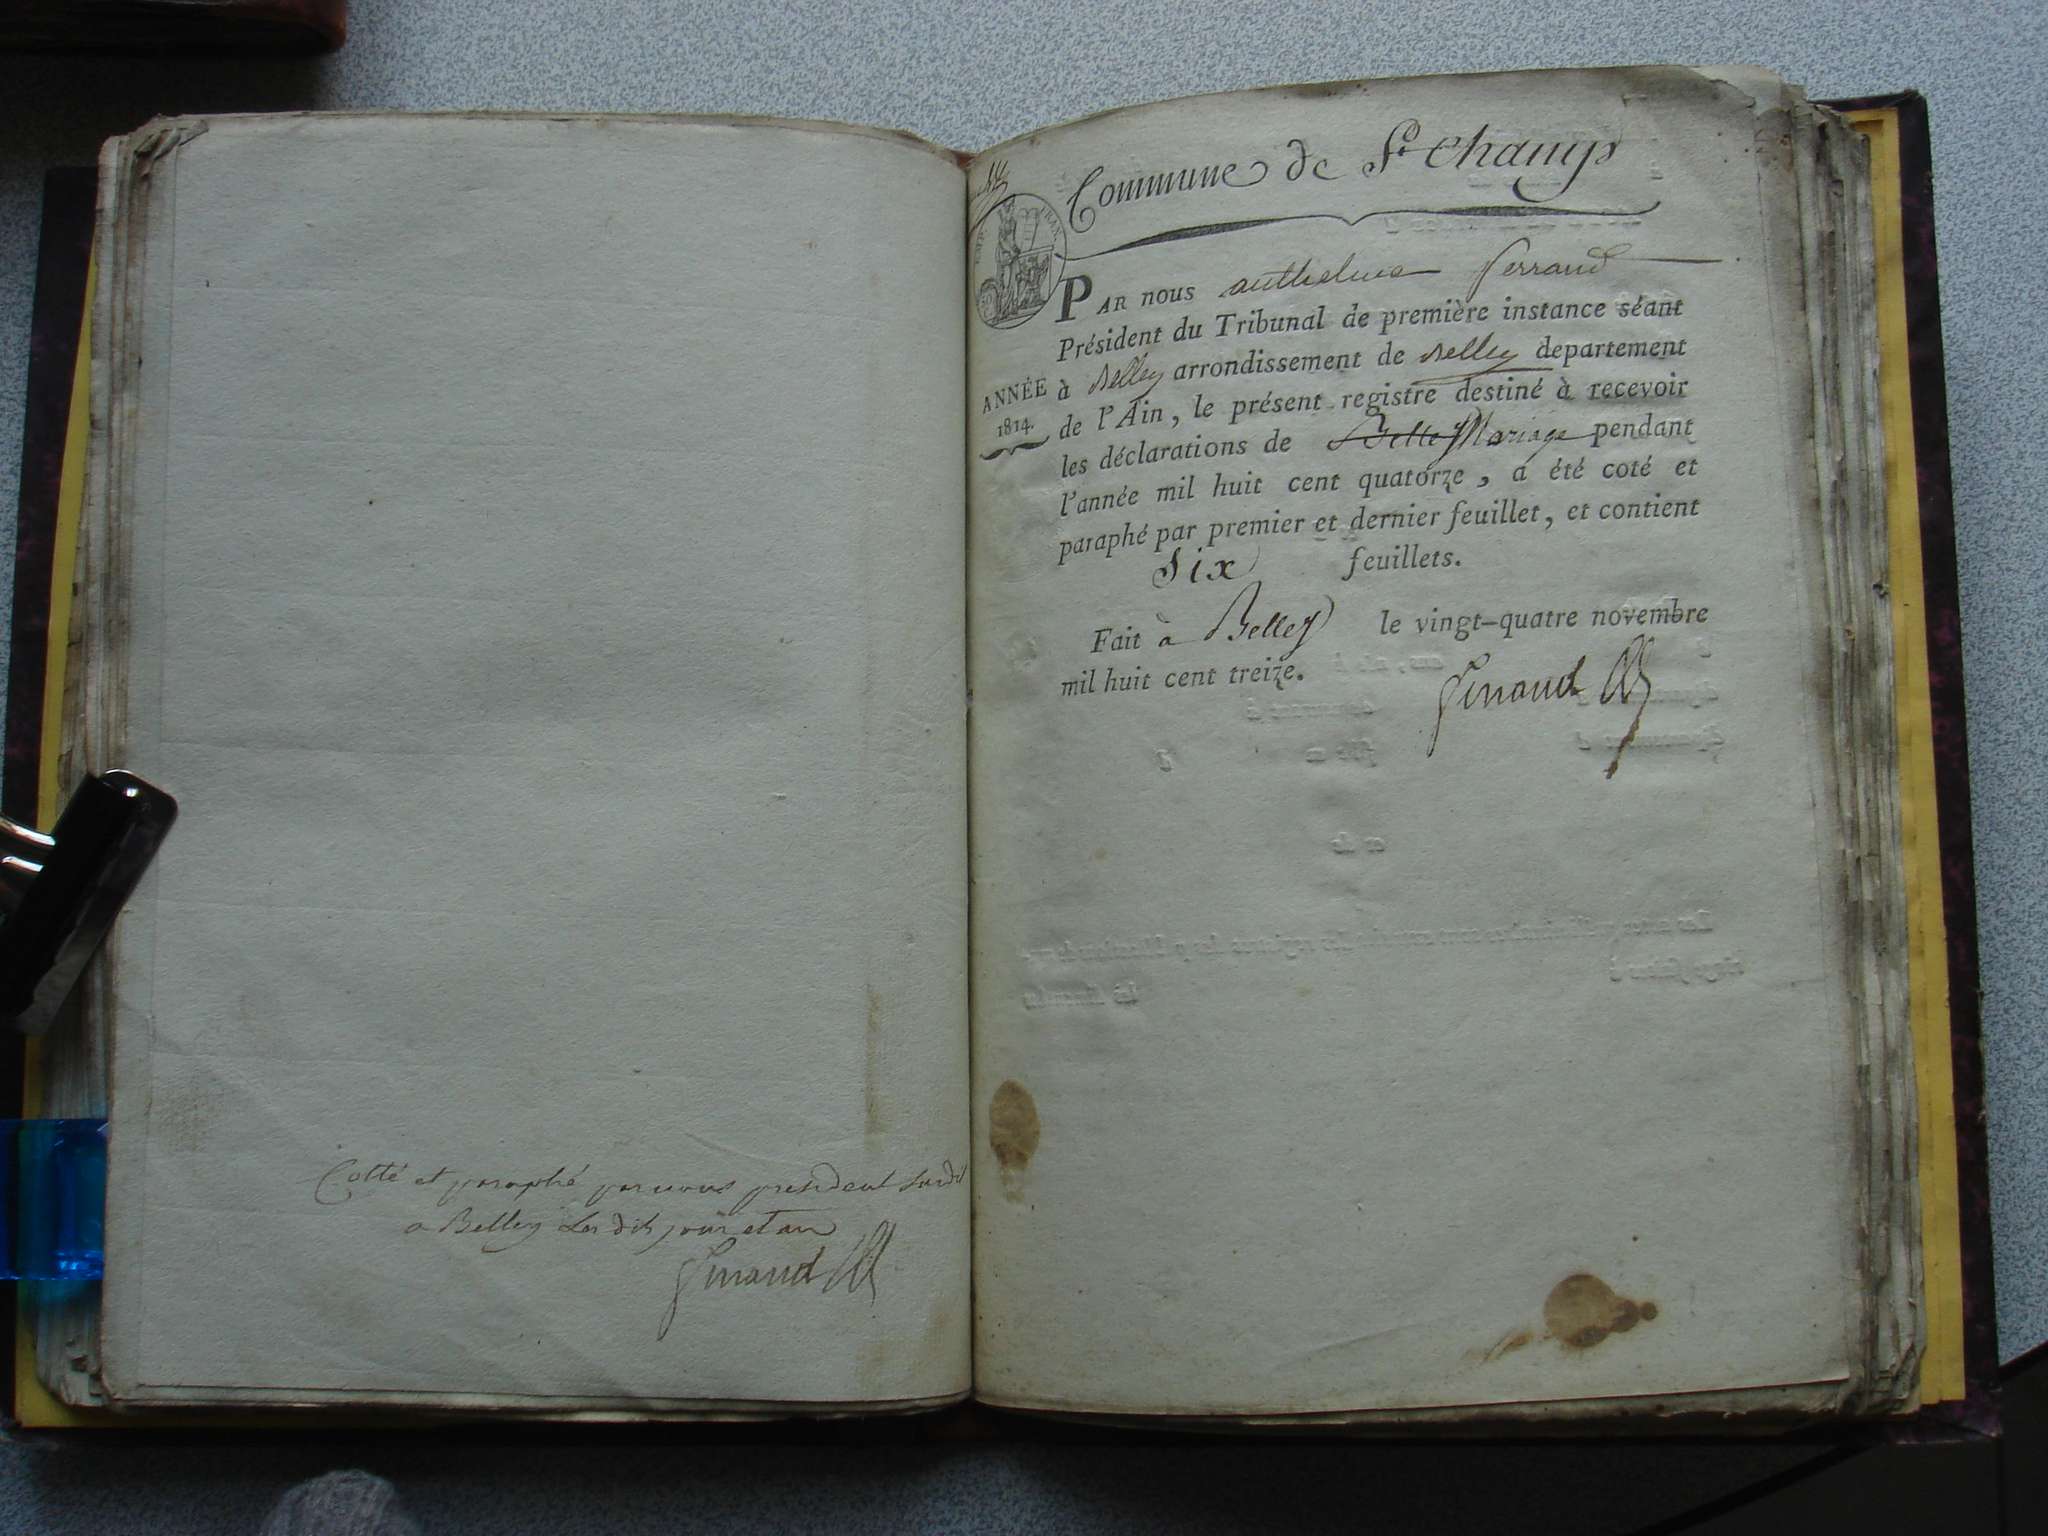 Cotté et paraphé par nous président susdit
a Belley les dits jour et an
Ferrand
Commune de St Champ
EMP. FRAN.
PAR nous anthelme ferrand
Président du Tribunal de première instance séant
à Belley arrondissement de Belley departement
ANNÉE
1814.
de l'Ain, le présent registre destiné à recevoir
les déclarations de Belley Mariage pendant
l'année mil huit cent quatorze, a été coté et
paraphé par premier et dernier feuillet, et contient
Six feuillets.
Fait à Belley le vingt-quatre novembre
mil huit cent treize.
Ferrand